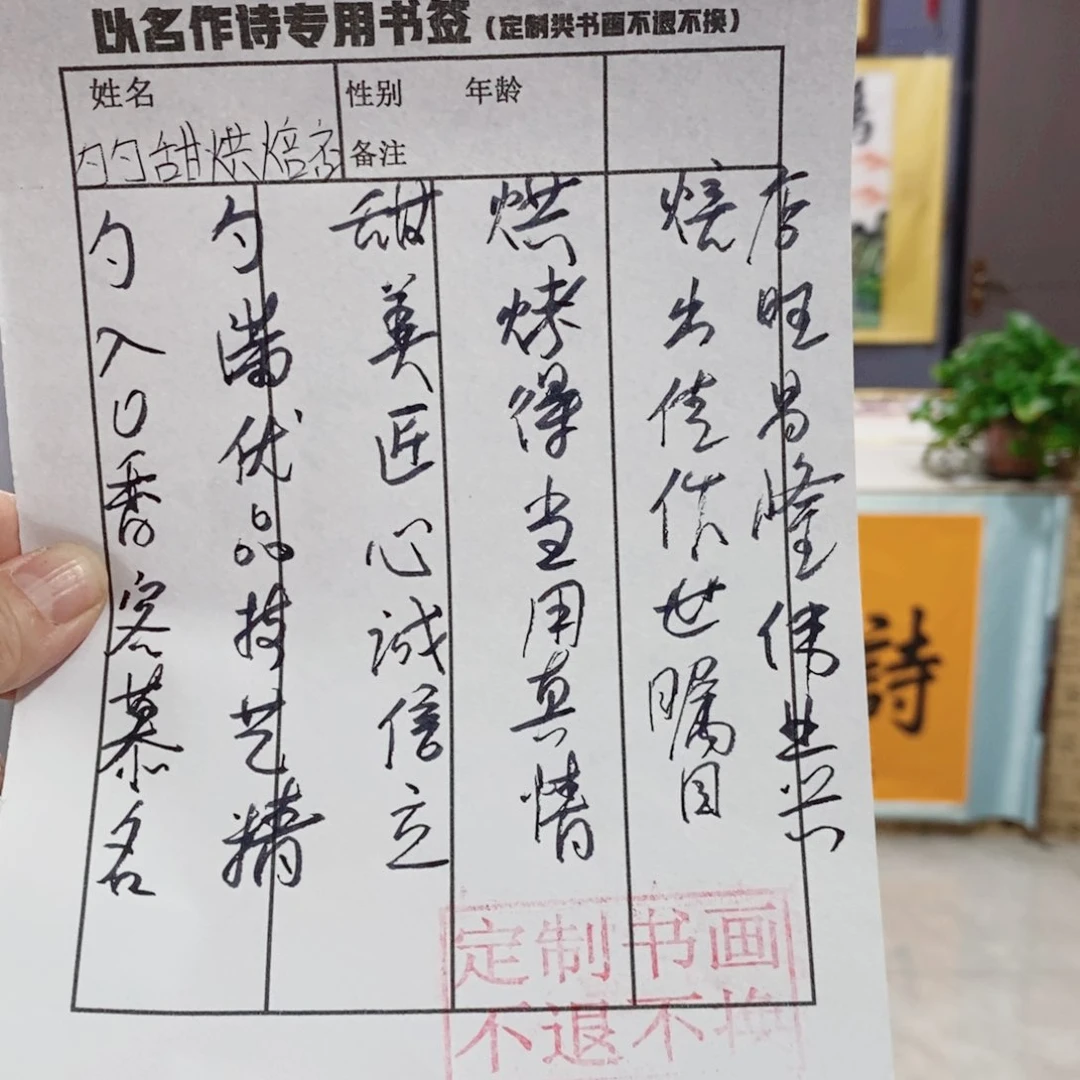 以名作诗专用书签(定制类书画不退不换)
姓名
性别
年龄
勺勺甜烘焙店
备注
勺入口香客慕名
勺满优品技艺精
甜美匠心诚信立
烘烤得当用真情
焙出佳作世瞩目
店旺昌隆伟业兴
定制书画
不退不换
詩